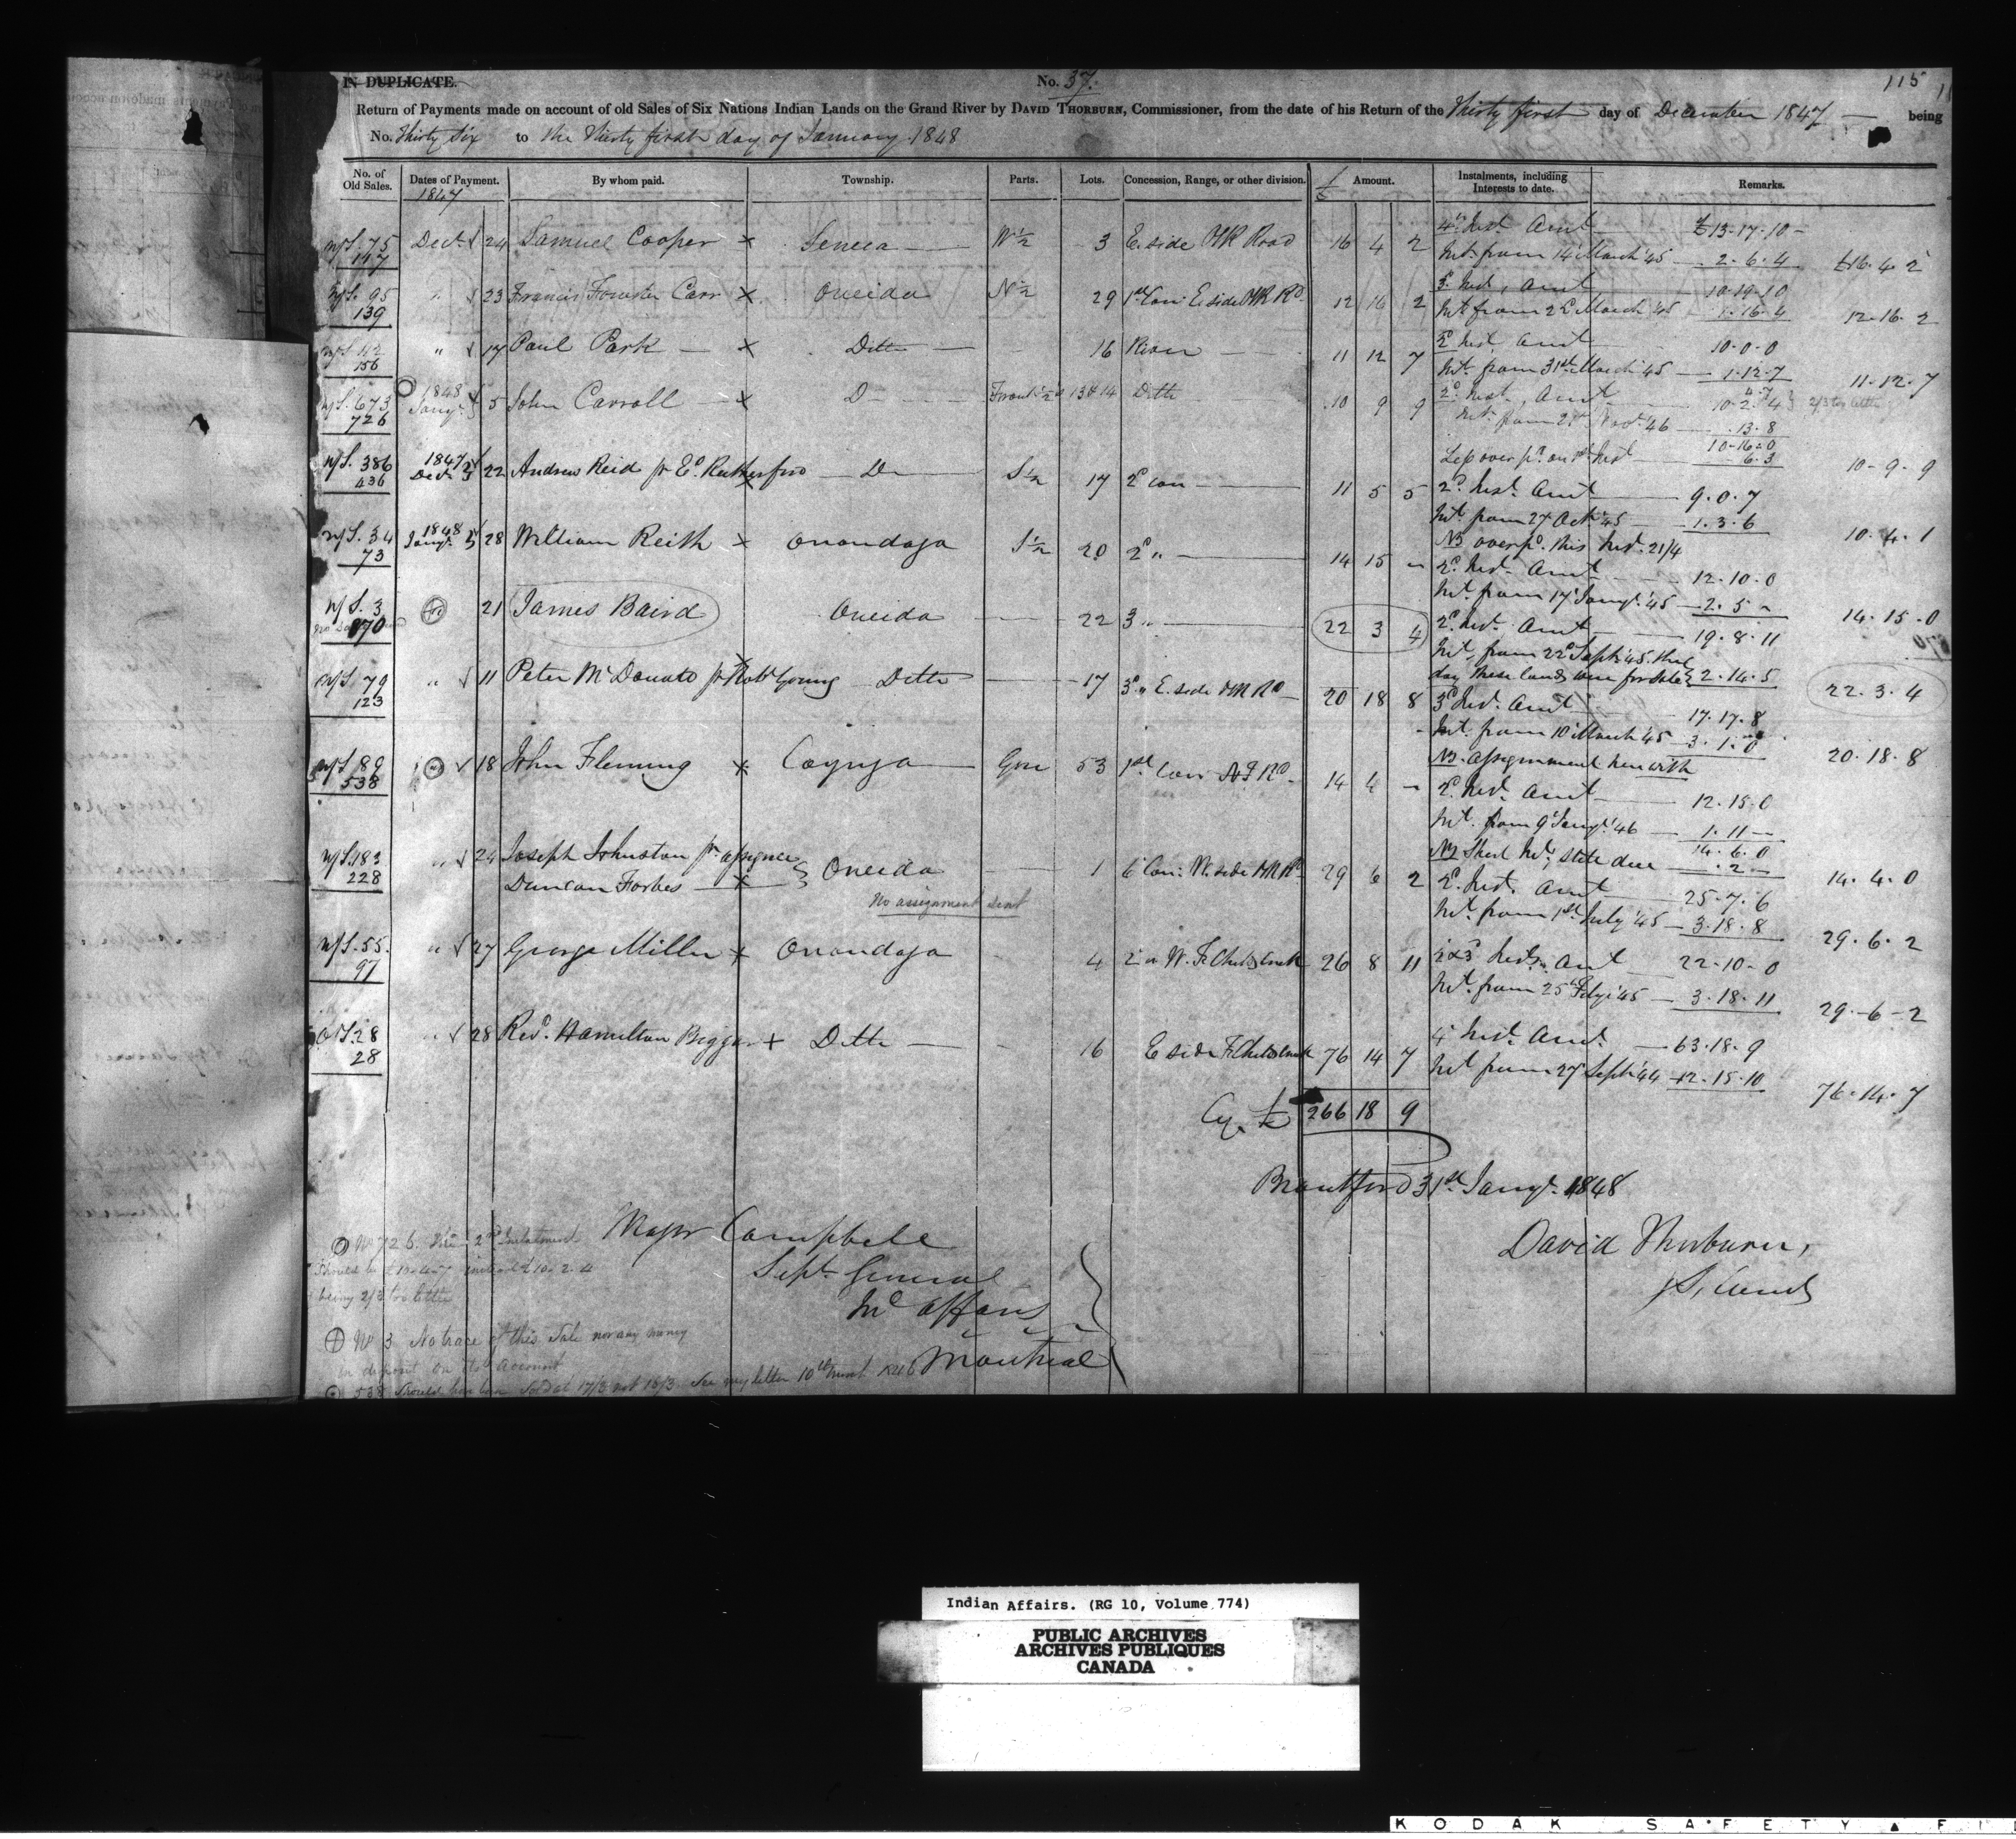 115
IN DUPLICATE.
No. 37.
Return of Payments made on account of old Sales of Six Nations Indian Lands on the Grand River by DAVID THORBURN, Commissioner, from the date of his Return of the Thirty first day of December 1847 — being
No. Thirty Six to the Thirty first day of January 1848
No. of Old Sales. Dates of Payment. By whom paid. Township. Parts. Lots. Concession, Range, or other division. £ Amount. Instalments, including Interests to date. Remarks.
1847
N/S. 75 Decr. 24 Samuel Cooper x Seneca W½ 3 E. side HR Road 16 4 2 4th Inst. Amt £13-17-10
147 Int. from 14 March '45 2.6.4 £16.4.2
N/S. 95 " 23 Francis Forester Carr x Oneida N½ 29 1st Con: E. side HR Rd. 12 16 2 Inst, Amt 10-19-10
139 Int. from 22 March '45 1.16.4 12.16.2
156 " 17 Paul Park x Ditto 16 River 11 12 7 2d Inst. Amt 10-0-0
Int. from 31st March '45 1.12.7 11.12.7
N/S. 673 1848 Jany. 5 John Carroll x Do Front ½ 13 & 14 Ditto 10 9 9 2d Inst, Amt 10-2-4
726 Int. from Novr. 46 .13.8
10-16-0
Less over pd. on 1st Inst 6.3 10-9-9
N/S. 386 1847 Decr. 22 Andrew Reid pr Ed. Rutherford x Do S½ 17 2d con 11 5 5 2d. Inst. Amt 9.0.7
436 Int. from 27 Octr. '45 1.3.6 10.4.1
NB over pd. this Inst. 21/4
N/S. 34 1848 Jany. 28 William Reith x Onondaga S½ 20 2d " 14 15 - 2d. Inst. Amt 12.10.0
73 Int. from 17 Jany. '45 2.5 - 14.15.0
N/S. 3 21 James Baird Oneida 22 3 " 22 3 4 2d. Inst. Amt 19.8.11
870 Int. from 22d Septr. '45. the
day these lands were for sale 2.14.5 22.3.4
N/S. 79 " 11 Peter McDonald pr Robt Young x Ditto 17 3d " E. side HR Rd 20 18 8 3d Inst. Amt 17.17.8
123 Int. from 10 March '45 3.1.0 20.18.8
NB. Assignment herewith
N/S 89 18 John Fleming x Cayuga Gore 53 1st Con N Rd. 14 4 - 2d. Inst. Amt 12.15.0
538 Int. from 9 Jany. '46 1.11 -
14.6.0
NB Short Int. still due .2 - 14.4.0
N/S. 183 " 24 Joseph Johnston pr assignee Oneida 1 6 Con: W. side HR Rd. 29 6 2 2d. Inst. Amt 25-7-6
228 Duncan Forbes x Int. from 1st July '45 3.18.8 29.6.2
No assignment sent
N/S. 55. " 27 George Miller x Onondaga 4 2d " W. Creek 26 8 11 2 & 3 Insts. Amt 22-10-0
97 Int. from 25 Feby. '45 3.18.11 29-6-2
O/S. 28 " 28 Revd. Hamilton Biggar x Ditto 16 E side Creek 76 14 7 4 Inst. Amt. 63.18.9
28 Int from 27 Septr. '44 12.15.10 76.14.7
Cy. £ 266 18 9
Brantford 31st Jany. 1848
David Thorburn,
Major Campbell
Supt. General
Ind Affairs
Montreal
No 726. The 2nd Instalment
Should be £10-4-7 instead £10.2.4
being 2/3 too little
No 3 No trace of this Sale nor any money
in deposit on its account
538 Should have been Sold at 17/6 not 16/3. See my letter 10th
Indian Affairs. (RG 10, Volume 774)
PUBLIC ARCHIVES
ARCHIVES PUBLIQUES
CANADA
KODAK SAFETY FI